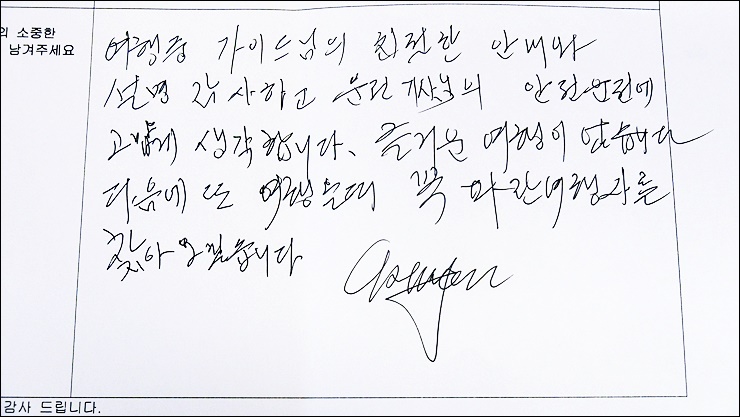 의 소중한
남겨주세요
여행중 가이드님의 친절한 안내와
설명 감사하고 운전 기사님의 안전운전에
고맙게 생각합니다. 즐거운 여행이 였습니다
다음에 또 여행올때 꼭 파란여행사를
찾아 오겠습니다
감사 드립니다.